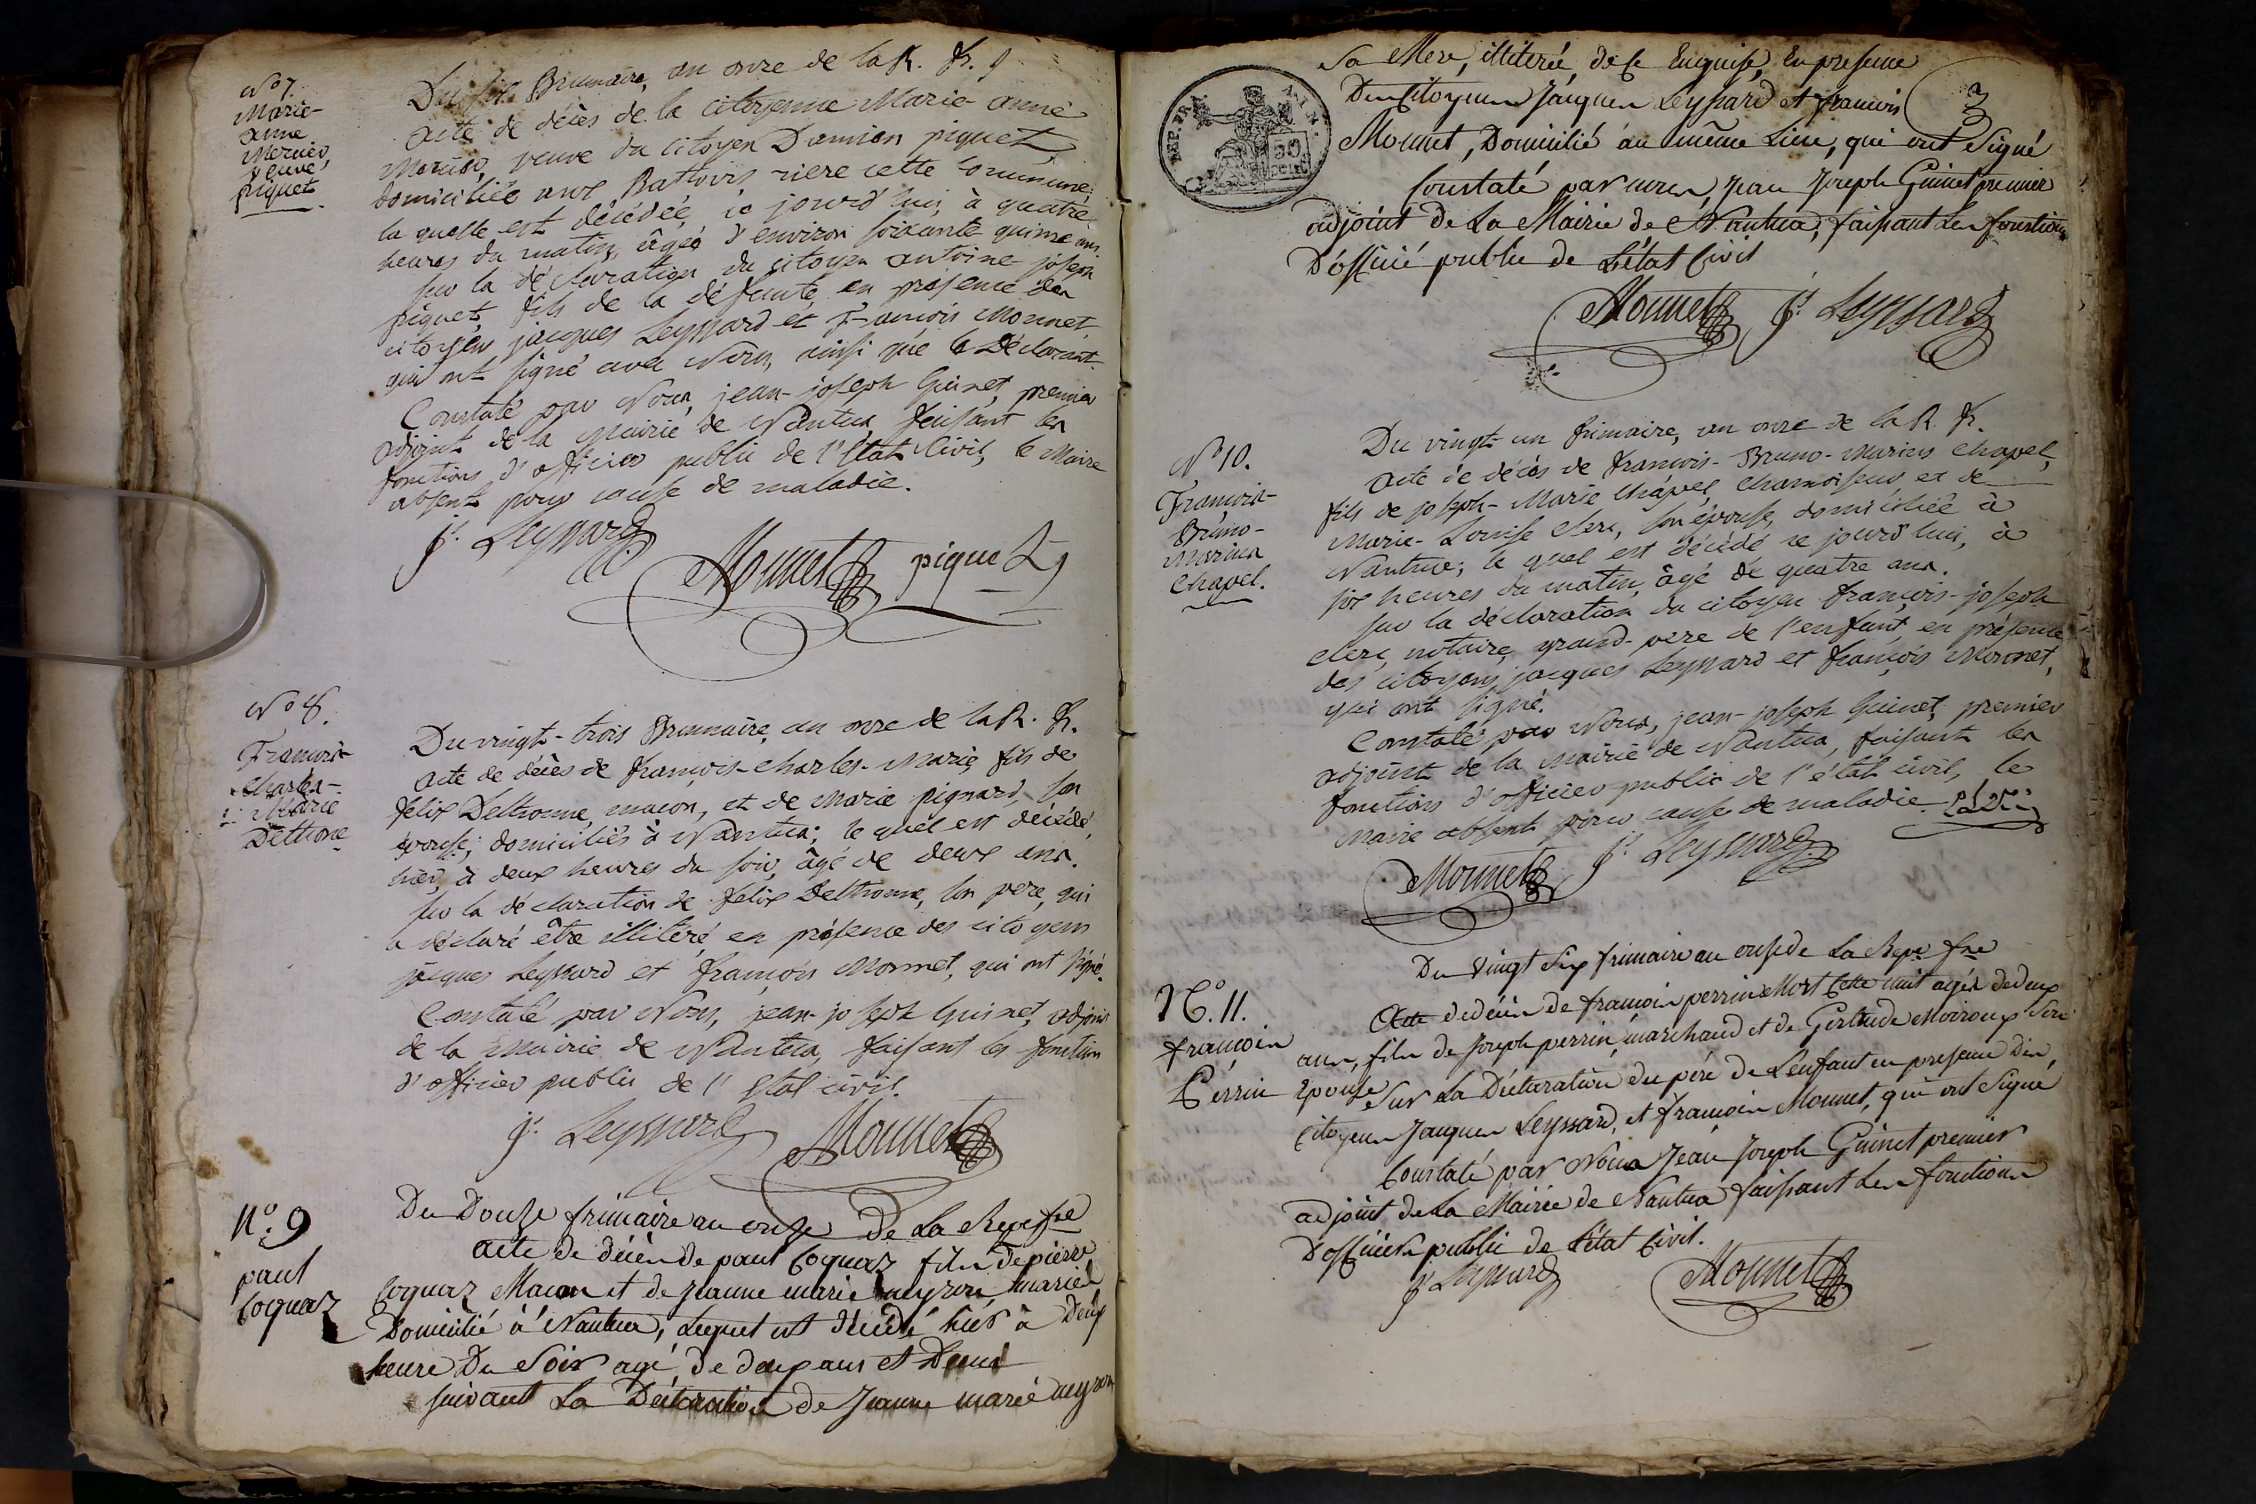 N° 7.
Marie-
anne
Mercier,
veuve
piquet
Du six Brumaire, an onze de la R. fr.
Acte de décès de la citoyenne Marie-anne
Mercier, veuve du citoyen Damian piquet,
domiciliée aux Battoirs riere cette commune;
la quelle est décédée, ce jourd'hui, à quatre
heures du matin, âgée d'environ soixante quinze ans.
sur la déclaration du citoyen antoine joseph
piquet, fils de la défunte, en présence des
citoyens jacques Leyssard et françois Monnet
qui ont signé avec Nous, ainsi que le Déclarant.
Constaté par Nous, jean-joseph Guinet, premier
adjoint de la Mairie de Nantua, faisant les
fonctions d'officier public de l'Etat Civil, le Maire
absent pour cause de maladie.
j. Leyssard
Monnet piquet
N° 8.
François-
Charles-
Marie
Delhone
Du vingt-trois Brumaire, an onze de la R. fr.
Acte de décès de françois-charles-Marie, fils de
felix Delhonne, maçon, et de Marie pignard, son
épouse; domiciliés à Nantua; le quel est décédé,
hier, à deux heures du soir, âgé de deux ans.
sur la déclaration de felix Delhonne, son pere, qui
a déclaré être illitéré, en présence des citoyens
jacques Leyssard et françois Monnet, qui ont signé.
Constaté par Nous, jean-joseph Guinet, adjoint
de la Mairie de Nantua, faisant les fonction
d'officier public de l'Etat civil.
j. Leyssard Monnet
N°. 9
paul
Coquaz
Du Douze frimaire an onze de La Repe fre
acte de décès de paul Coquaz fils de pierre
Coquaz Macon et de jeanne marie neyron mariés
Domicilié à Nantua, Lequel est décédé hier à deux
heure Du Soir agé de deux ans et Demi
suivant La Déclaration de Jeanne marie neyron
Sa Mere, illiterée, de ce Enquise, En presence
Des Citoyens Jacques Leyssard et francois
3
Monnet, Domicilié au même Lieu, qui ont Signé
REP. FRA.
AIN.
50
cent.
Constaté par nous, Jean Joseph Guinet premier
adjoint de La Mairie de Nantua, faisant Les fonctions
D'officié public de L'état Civil
Monnet j. Leyssard
N° 10.
François-
Bruno-
Marius
Chapel.
Du vingt-un frimaire, an onze de la R. fr.
Acte de décès de françois-Bruno-Marius Chapel,
fils de joseph-Marie Chapel, chamoiseur et de
Marie-Louise Clerc, son épouse, domiciliée à
Nantua; le quel est décédé ce jourd'hui, à
six heures du matin, âgé de quatre ans.
sur la déclaration du citoyen françois-joseph
clerc, notaire, grand-pere de l'enfant, en présence
des citoyens jacques Leyssard et françois Monnet,
qui ont signé.
Constaté par Nous, jean-joseph Guinet, premier
adjoint de la Mairie de Nantua, faisant les
fonctions d'officier public de l'état civil, le
Maire absent, pour cause de maladie.
Monnet j. Leyssard
N°. 11.
françois
Perrin
Du Vingt Six frimaire an onse de La Repe fre
Acte de décès de françois perrin Mort Cette nuit agés de deux
ans, fils de Joseph perrin, marchand et de Gertrude Moiroux Son
Epouse Sur La Déclaration du péré de L'enfant en presence des
Citoyens Jacques Leyssard, et françois Monnet, qui ont Signé
Constaté par Nous Jean Joseph Guinet premier
adjoint de La Mairie de Nantua faisant Les fonctions
D'officiér public de L'état Civil.
j. Leyssard Monnet